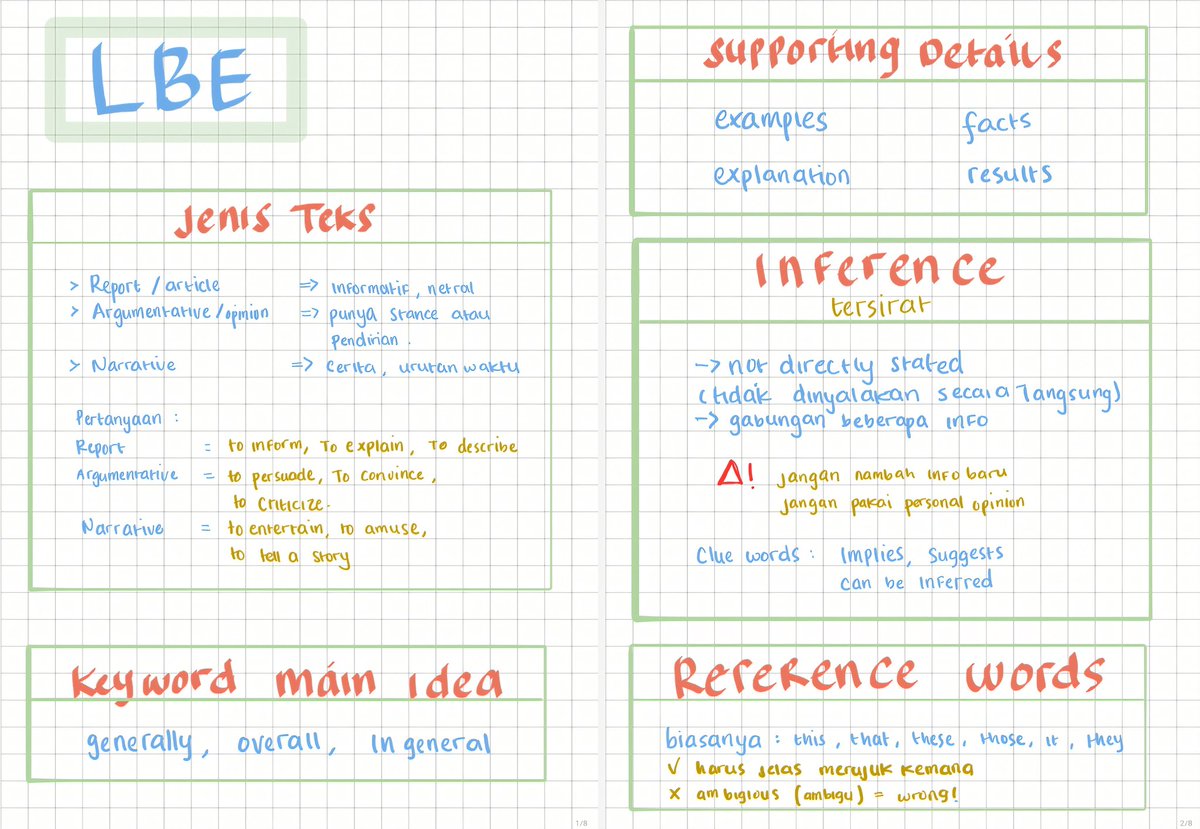 LBE
Jenis Teks
> Report / article => Informatif, netral
> Argumentative / opinion => punya stance atau
pendirian.
> Narrative => cerita, urutan waktu
Pertanyaan :
Report = to inform, To explain, To describe
Argumentative = to persuade, To convince,
to criticize.
Narrative = to entertain, to amuse,
to tell a story
Keyword máin idea
generally, overall, In general
1/8
Supporting Details
examples facts
explanation results
Inference
tersirat
-> not directly stated
(tidak dinyalakan secara langsung)
-> gabungan beberapa info
! jangan nambah info baru
jangan pakai personal opinion
Clue words : Implies, Suggests
can be inferred
Reference words
biasanya : this, that, these, those, it, they
√ harus jelas merujuk kemana
× ambigious (ambigu) = wrong!
2/8